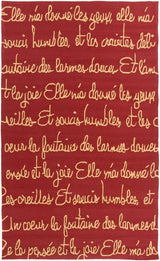 Elle m'a donné les yeux, elle m'a
soucis humbles, et les craintes déli
fontaine des larmes douces. Et l'an
et la joie Elle m'a donné les yeux,
oreilles Et soucis humbles, et les c
cœur la fontaine des larmes douce
ensée et la joie. Elle m'a donné la
les oreilles Et soucis humbles, et
Un cœur la fontaine des larmes d
la pensée et la joie Elle m'a